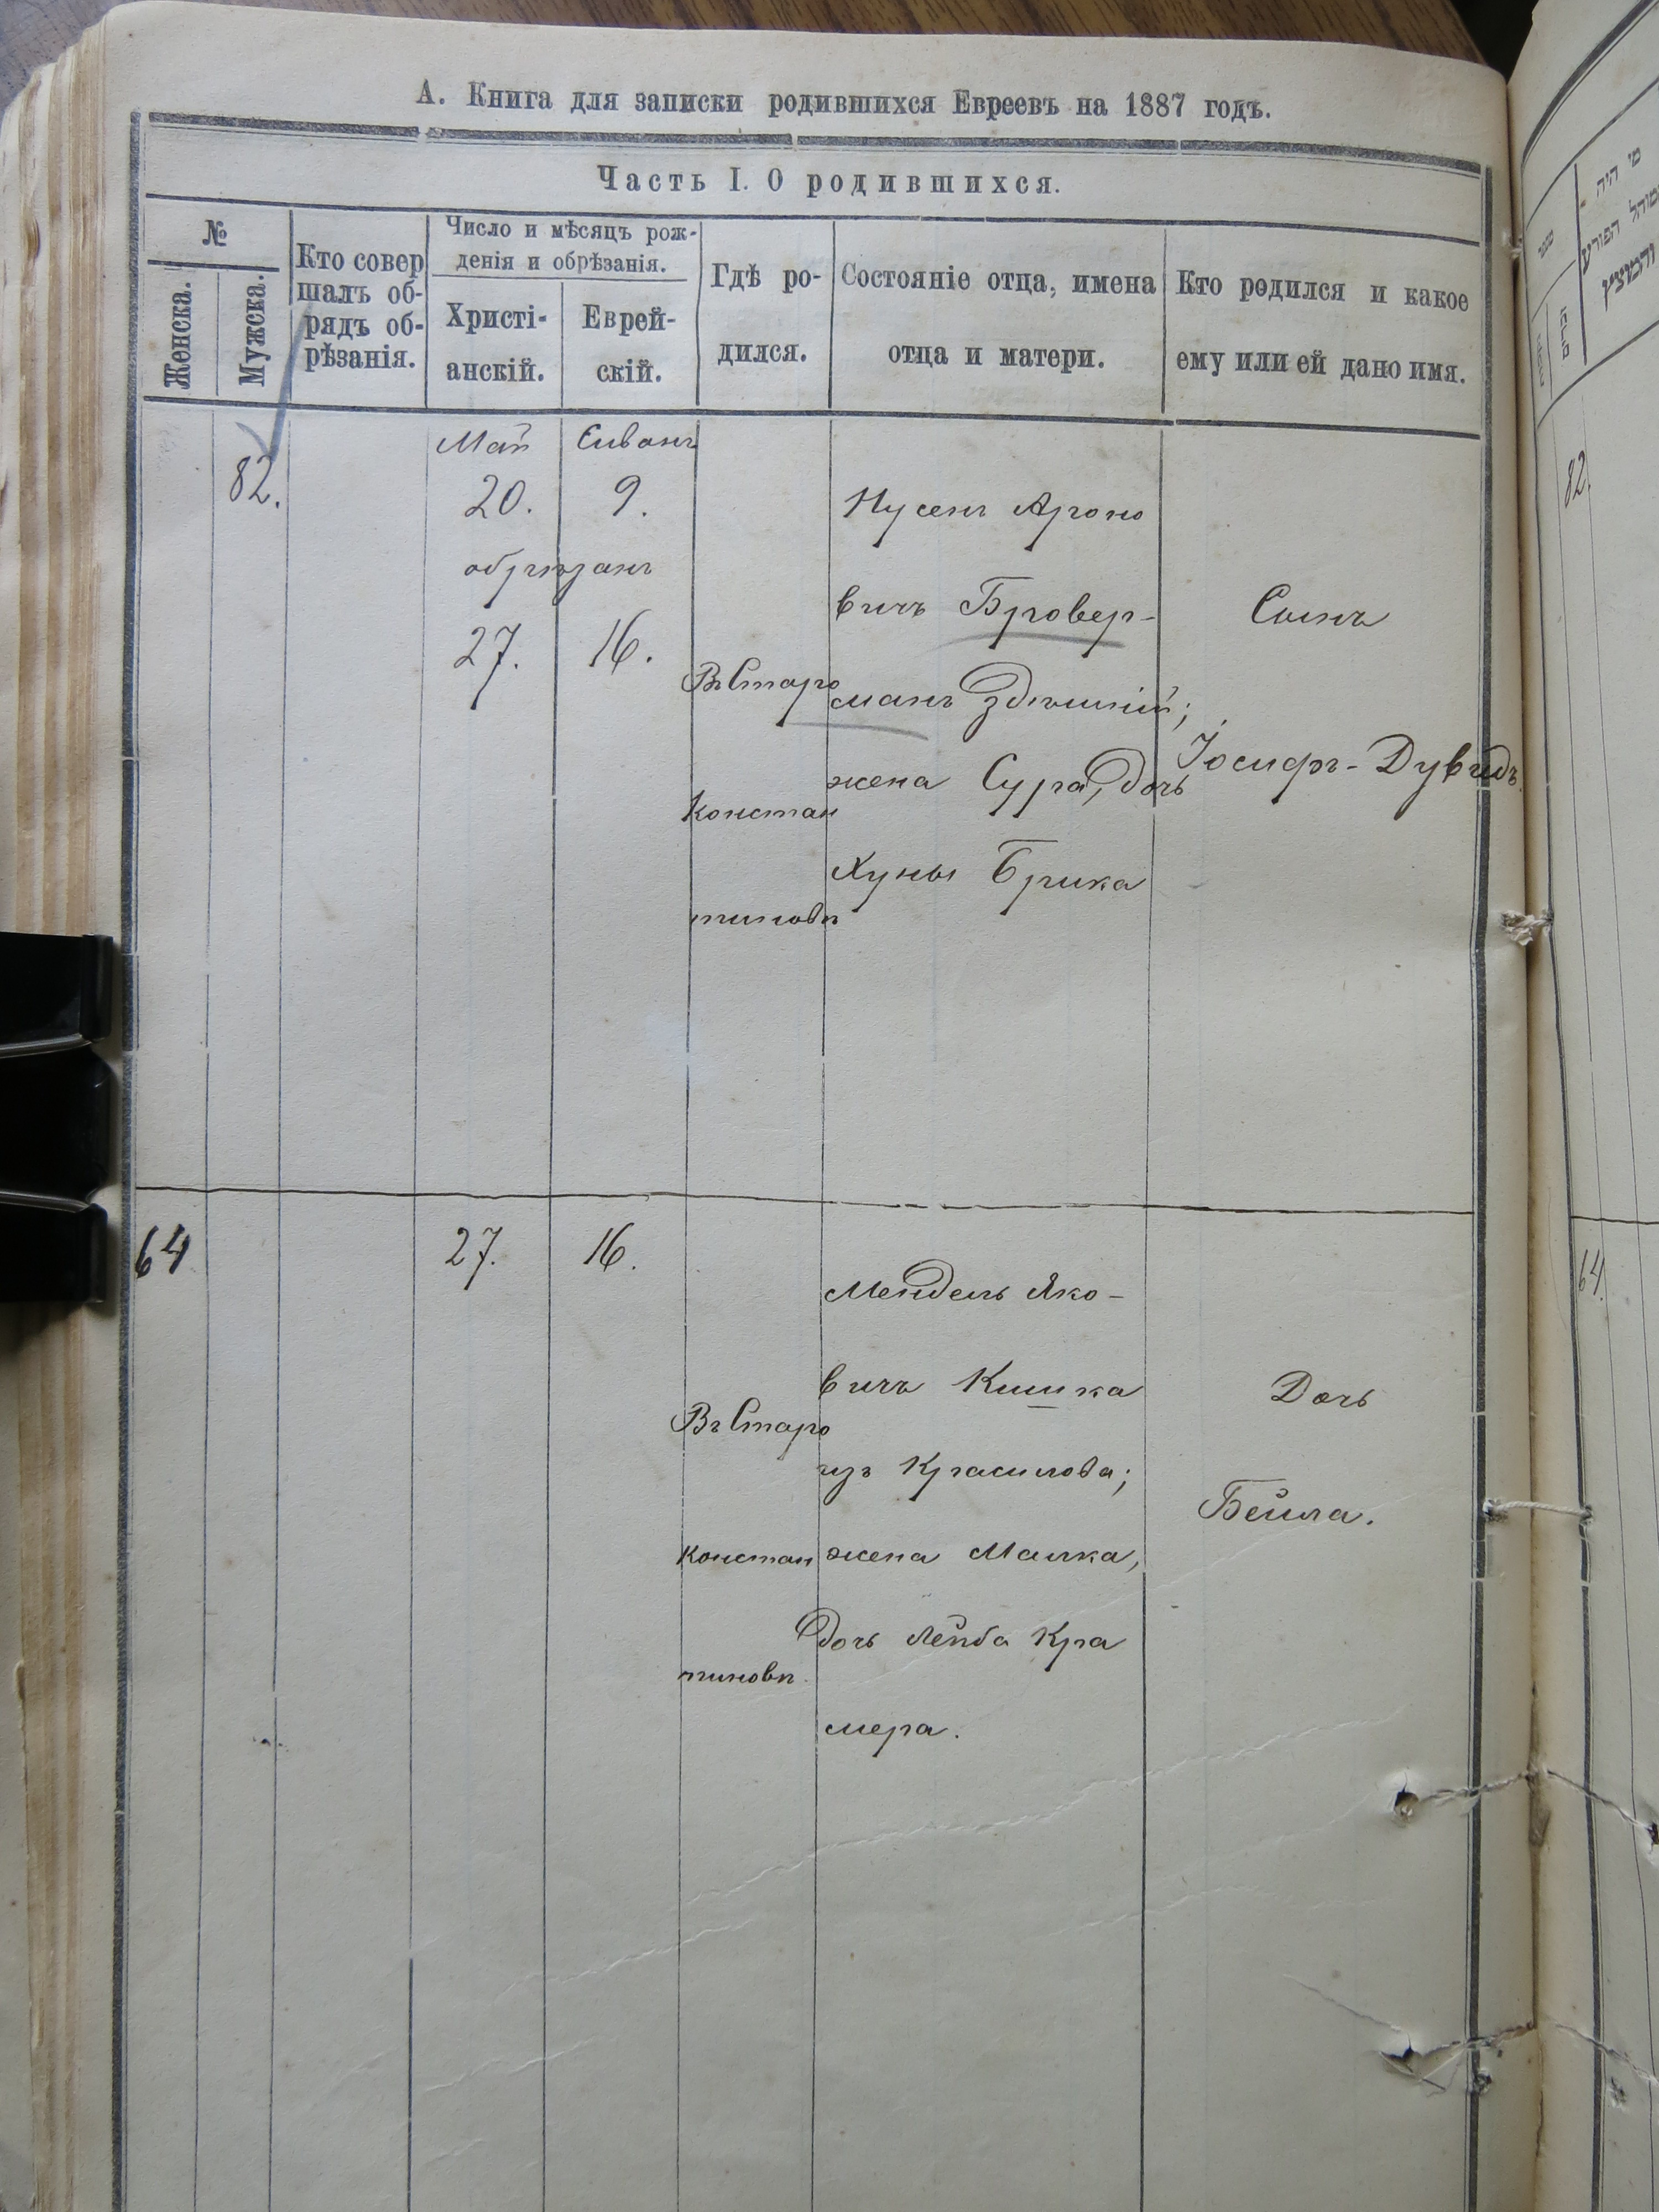 А. Книга для записки родившихся Евреевъ на 1887 годъ.
Часть I. О родившихся.
№
Женска.
Мужска.
Кто совер
шалъ об-
рядъ об-
рѣзанія.
Число и мѣсяцъ рож-
денія и обрѣзанія.
Христі-
анскій.
Еврей-
скій.
Гдѣ ро-
дился.
Состояніе отца, имена
отца и матери.
Кто родился и какое
ему или ей дано имя.
82.
Май
20.
обрѣзанъ
27.
Сиванъ
9.
16.
Въ Старо
констан
тиновѣ
Нусенъ Ароно
вичъ Бровер-
манъ здѣшній;
жена Сура, дочь
Хуны Брика
Сынъ
Іосифъ-Дувидъ.
64
27.
16.
Въ Старо
констан
тиновѣ
Мендель Яко-
вичъ Кишка
изъ Красилова;
жена Малка,
дочь Лейба Кра
мера.
Дочь
Бейла.
מי היה
המוהל הפורע
והמוצץ
82.
64.